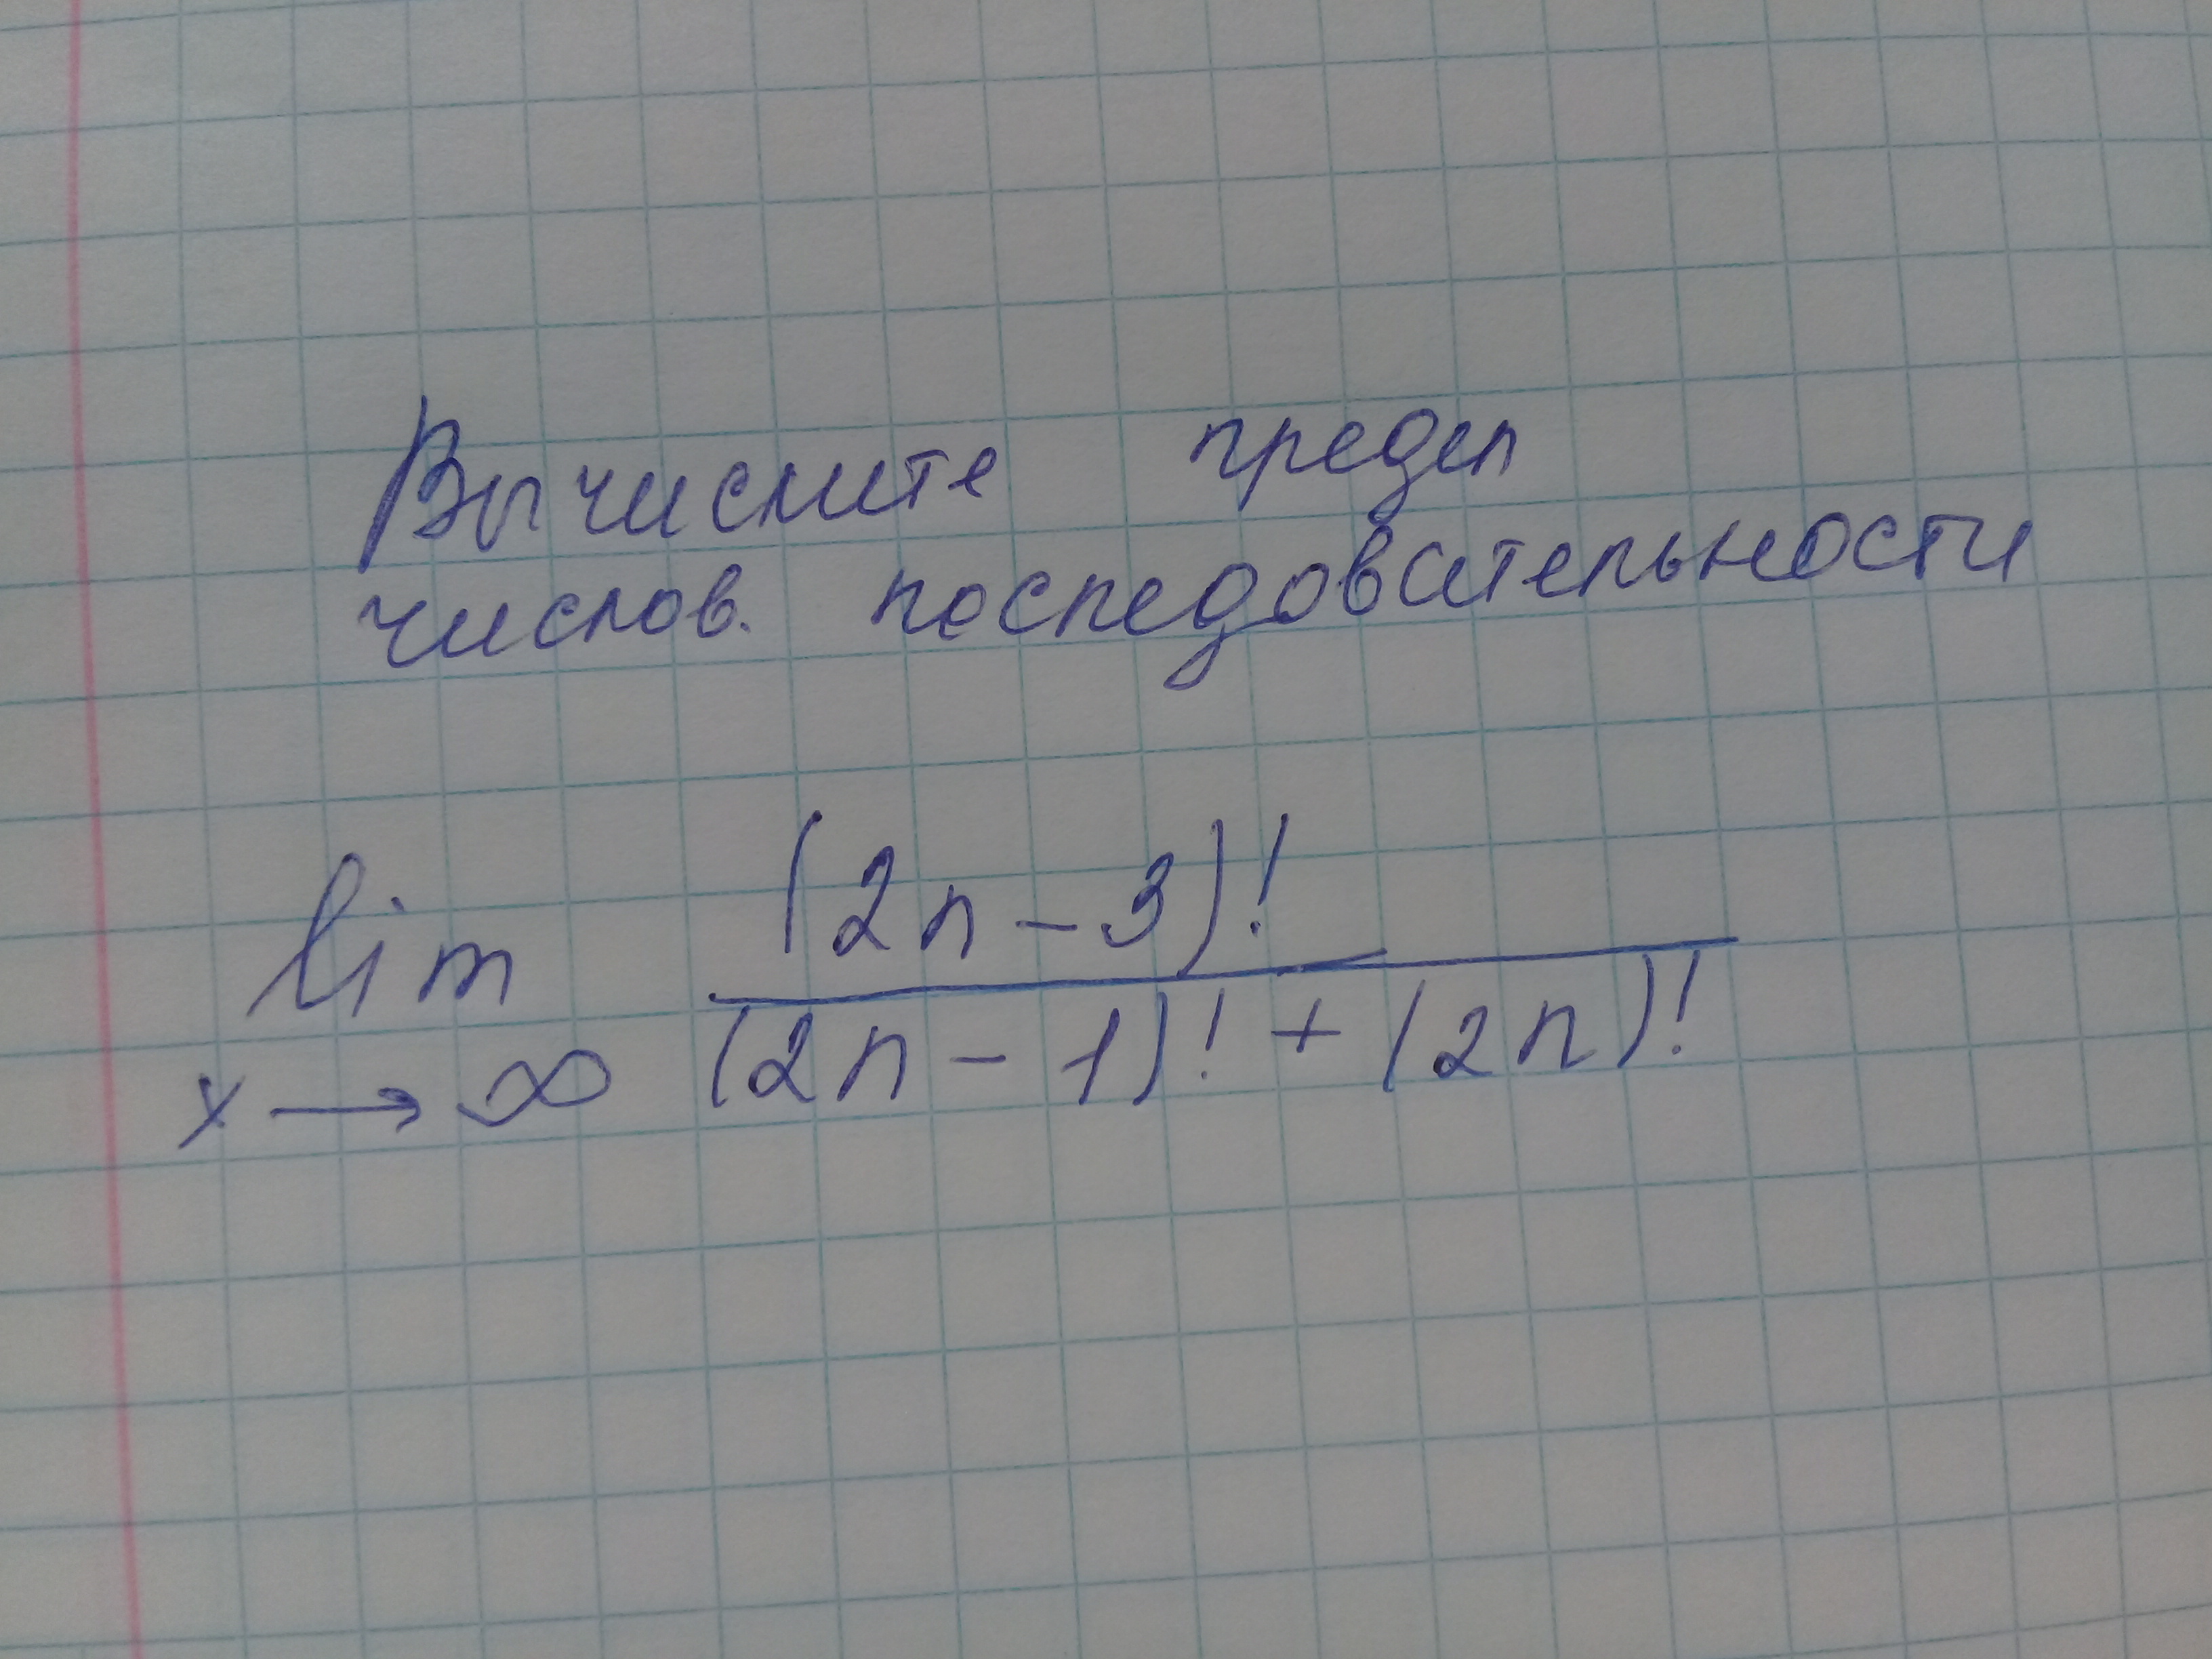 Вычислите предел
числов. последовательности
lim (2n-3)!
x → ∞ (2n-1)! + (2n)!